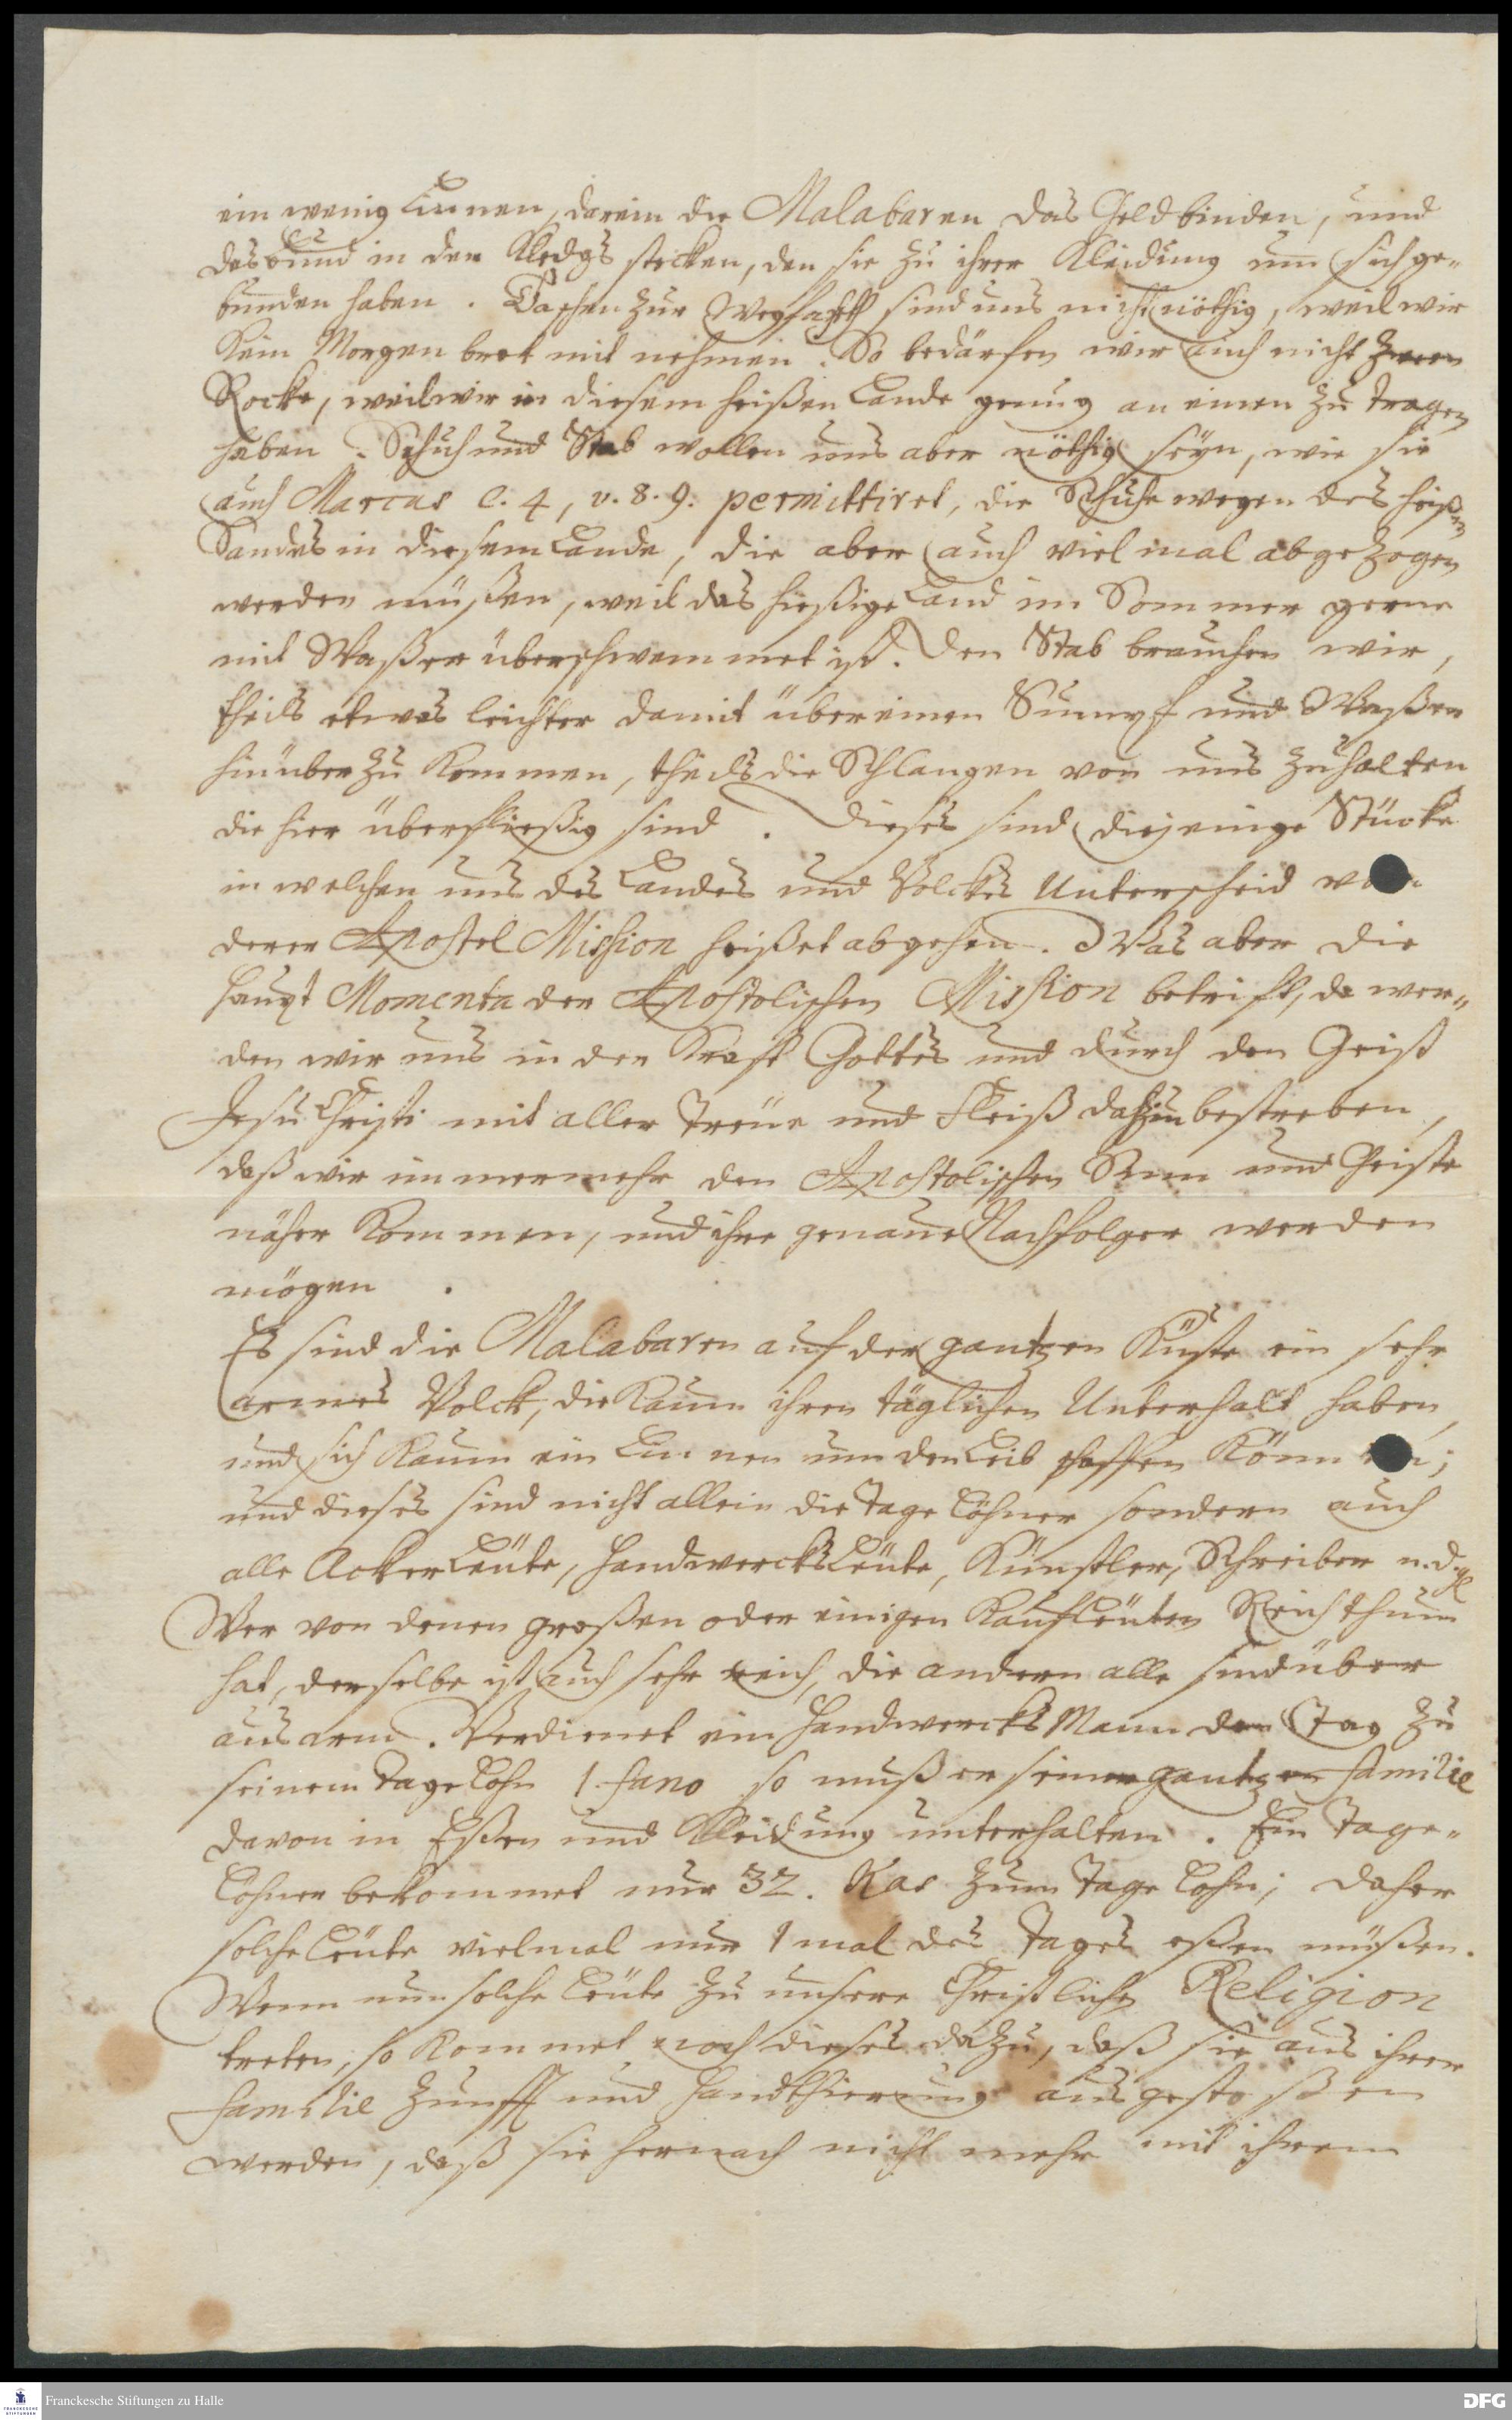 ein wenig Linnen, darein die Malabaren das Geld binden, und
das bund in den Kledgs stecken, den sie zu ihrer Kleidung um sich ge-
bunden haben. Taschen zur Wegfarth sind uns nicht nöthig, weil wir
kein Morgen brot mit nehmen. So bedürfen wir auch nicht zween
Rocke, weil wir in diesem heißen Lande genug an einen zu tragen
haben. Schuh und Stab wollen uns aber nöthig seyn, wie sie
auch Marcus c. 4, v. 8. 9. permittiret, die Schuhe wegen des heißen
Sandes in diesem Lande, die aber auch viel mal abgezogen
werden müßen, weil das hießige Land im Sommer gerne
mit Waßer überschwemmet ist. Den Stab brauchen wir,
theils etwas leichter damit über einen Sumpf und Waßer
hinüber zu kommen, theils die Schlangen von uns zu halten
die hier überfließig sind. Dieses sind diejenige Stücke
in welchen uns des Landes und Volckes Unterscheid von
derer Apostel Mission heißet abgehen. Was aber die
haupt Momenta der Apostolischen Mission betrifft, da wer-
den wir uns in der Krafft Gottes und durch den Geist
Jesu Christi mit aller Treue und Fleiß dahin bestreben,
daß wir immermehr den Apostolischen Sinn und Geiste
näher kommen, und ihre genaue Nachfolger werden
mögen.
Es sind die Malabaren auf der gantzen Küste ein sehr
armes Volck, die kaum ihren täglichen Unterhalt haben,
und sich kaum ein Linnen um den Leib schaffen können;
und dieses sind nicht allein die Tage Löhner sondern auch
alle Acker Leüte, Handwercks Leüte, Künstler, Schreiber u. d. gl
Wer von denen großen oder einigen Kaufleüten Reichthum
hat, derselbe ist auch sehr reich, die andern alle sind über
aus arm. Verdienet ein Handwercks Mann den Tag zu
seinem Tage Lohn 1. fano so muß er seine gantze familie
davon in Eßen und Kleidung unterhalten. Ein Tage-
Löhner bekommet nur 32. Kas zum Tage Lohn; daher
solche Leüte vielmal nur 1 mal des Tages eßen müßen.
Wenn nun solche Leüte zu unsere Christliche Religion
treten, so kommet noch dieses dazu, daß sie aus ihrer
familie Zunfft und Handthierung ausgestoßen
werden, daß sie hernach nicht mehr mit ihrem
Franckesche Stiftungen zu Halle
DFG